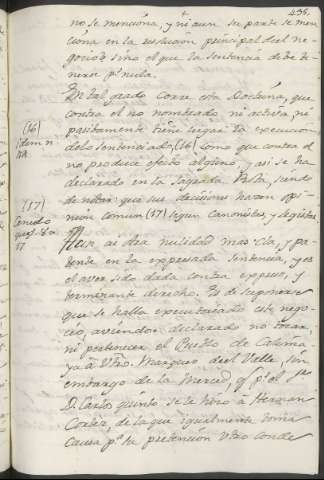 436.
no se menciona, y ni aun su parte se men
ciona en la decision principal del ne-
gocio; sino el que la sentencia debe te-
nerse pr nula.
En tal grado corre esta Doctrina, que
contra el no nombrado ni activa, ni
pasibamente tiene lugar la execucion
delo sentenciado, (16) como que contra el
no produce efecto alguno, y asi se ha
declarado en la Sagrada Rota, siendo
de notar que sus decisiones hacen opi-
nion comun (17) segun Canonistas, y Legistas.
(16)
Idem n.
(17)
Aun ai otra nulidad mas cla, y pa-
tente en la expresada Sentencia, y es
el aver sido dada contra expreso, y
terminante derecho. Es de suponerse
que se halla executoriado este nego-
cio, aviendose declarado no tocar,
ni pertenecer el Pueblo de Calima-
ya à Vtro. Marques del Valle, sin
embargo de la Merced, q pr el Sr
D. Carlos quinto se le hizo à Hernan
Cortes, de la que igualmente toma
causa pa su pretencion Vtro Conde